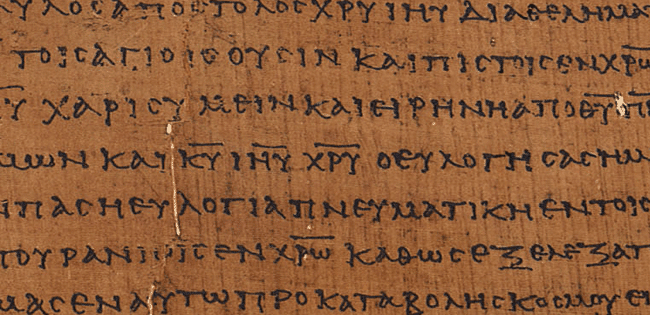 ΑΥΛΟΣ ΑΠΟΣΤΟΛΟΣ ΧΡΥ ΙΗΥ ΔΙΑ ΘΕΛΗΜΑ
ΤΟΙΣ ΑΓΙΟΙΣ ΟΥΣΙΝ ΚΑΙ ΠΙΣΤΟΙΣ ΕΝ ΧΡΩ
ΧΑΡΙΣ ΥΜΕΙΝ ΚΑΙ ΕΙΡΗΝΗ ΑΠΟ ΘΥ Π
ΜΩΝ ΚΑΙ ΚΥ ΙΗΥ ΧΡΥ Ο ΕΥΛΟΓΗΣΑΣ ΗΜ
ΠΑΣΗ ΕΥΛΟΓΙΑ ΠΝΕΥΜΑΤΙΚΗ ΕΝ ΤΟΙΣ
ΠΟΥΡΑΝΙΟΙΣ ΕΝ ΧΡΩ ΚΑΘΩΣ ΕΞΕΛΕΞΑΤ
ΜΑΣ ΕΝ ΑΥΤΩ ΠΡΟ ΚΑΤΑΒΟΛΗΣ ΚΟΣΜΟΥ ΕΙ